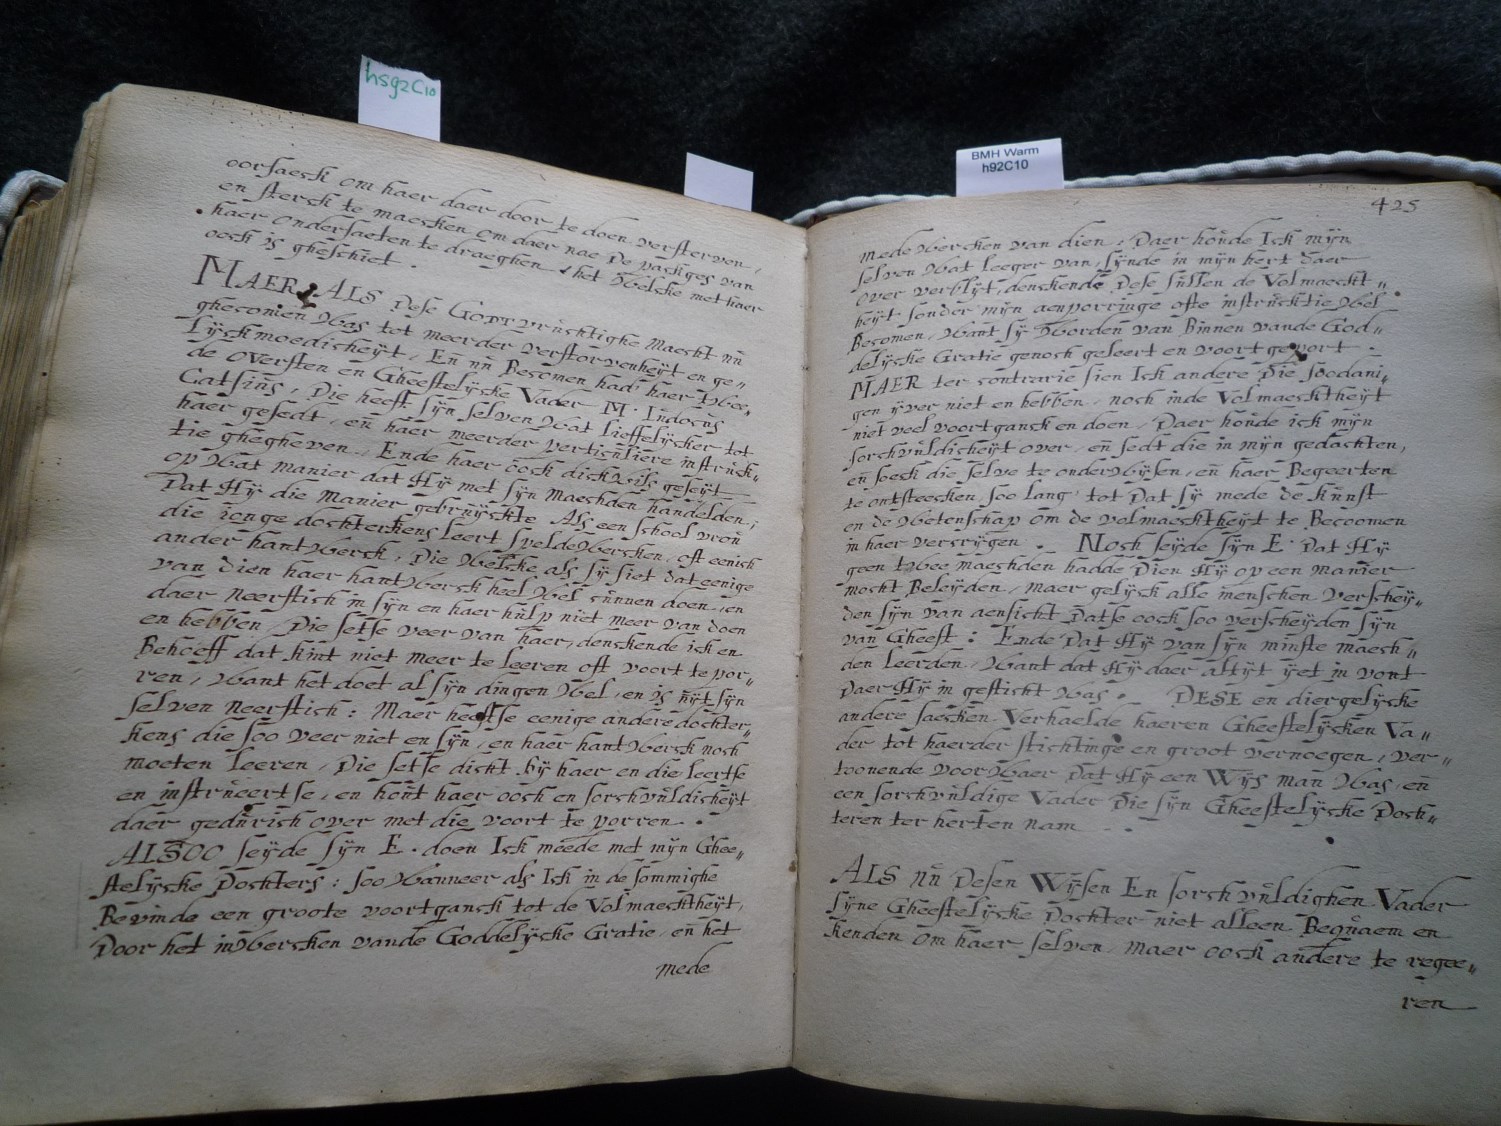 hs92C10
BMH Warm
h92C10
oorsaeck om haer daer door te doen versterven,
en sterck te maecken om daer nae de packges van
haer ondersaeten te draeghen, het welcke met haer
oock is gheschiet.
MAER ALS dese GODTvruchtighe Maecht nu
ghecomen was tot meerder verstorvenheyt en ge„
lyckmoedicheyt, En nu Becomen hadt haer twee„
de oversten en Gheestelycke Vader M. Iudocus
Catsius, die heeft syn selven wat lieffelycker tot
haer gesedt, en haer meerder perticuliere instruck„
tie ghegheven. Ende haer oock dickwils geseyt
op wat manier dat Hy met syn Maechden handelden;
Dat Hy die manier gebruyckte Als een school vrou
die ionge dochterkens leert speldewercken, oft eenich
ander hantwerck, die welcke als sy siet dat eenige
van dien haer hantwerck heel wel cunnen doen, en
daer neerstich in syn en haer hulp niet meer van doen
en hebben, die setse veer van haer, denckende ick en
Behoeff dat kint niet meer te leeren oft voort te por„
ren, want het doet al syn dingen wel, en is uyt syn
selven neerstich: Maer heeftse eenige andere dochter„
kens die soo veer niet en syn, en haer hantwerck noch
moeten leeren, die setse dicht by haer en die leertse
en instrueertse, en hout haer oock en sorchvuldicheyt
daer gedurich over met die voort te porren.
ALSOO seyde syn E. doen Ick meede met myn Ghee„
stelycke Dochters: soo wanneer als Ick in de sommighe
Bevinde een groote voortganck tot de Volmaecktheyt,
Door het inwercken vande Goddelycke Gratie, en het
mede
425
mede wercken van dien: Daer houde Ick myn
selven wat leeger van, synde in myn hert daer
over verblyt, denckende Dese sullen de Volmaeckt„
heyt sonder myn aenporringe ofte instructie wel
Becomen, want sy worden van Binnen vande God„
delycke Gratie genoch geleert en voort geport.
MAER ter contrarie sien Ick andere die soodani„
gen yver niet en hebben, noch inde Volmaecktheyt
niet veel voortganck en doen, Daer houde ick myn
sorchvuldicheyt over, en sedt die in myn gedachten,
en soeck die selve te onderwysen, en haer Begeerten
te ontsteecken, soo lang tot dat sy mede de kunst
en de wetenschap om de volmaecktheyt te Becoomen
in haer vercrygen. Noch seyde syn E. Dat Hy
geen twee maechden hadde Dien Hy op een manier
mocht Beleyden, maer gelyck alle menschen verschey„
den syn van aensicht Datse oock soo verscheyden syn
van Gheest: Ende Dat Hy van syn minste maech„
den leerden, want dat Hy daer altyt yet in vont
Daer Hy in gesticht was. DESE en diergelycke
andere saecken Verhaelde haeren Gheestelycken Va„
der tot haerder stichtinge en groot vernoegen, ver„
toonende voorwaer Dat Hy een Wys man was, en
een sorchvuldige Vader Die syn Gheestelycke Doch„
teren ter herten nam
ALS nu Desen Wysen En sorchvuldighen Vader
syne Gheestelycke Dochter niet alleen Bequaem en
kenden om haer selven, maer oock andere te regee„
ren